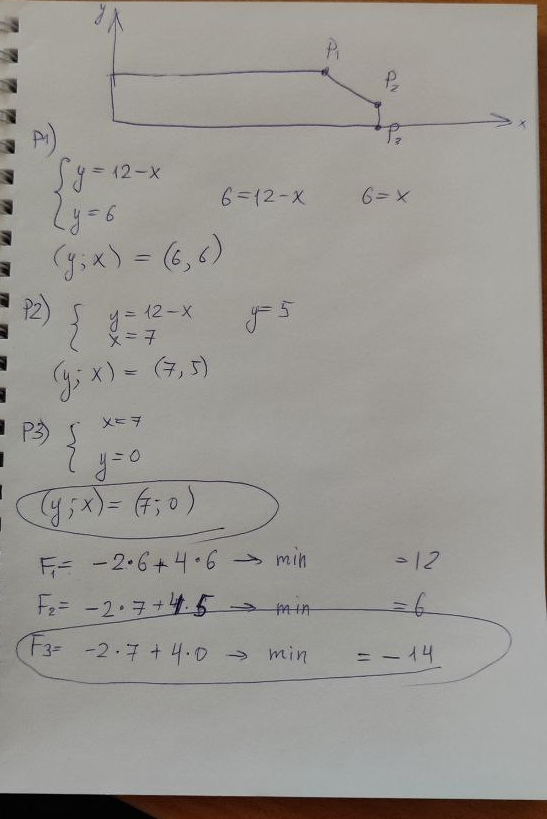 y
P₁
P₂
x
P₃
P1)
y = 12 - x
y = 6
6 = 12 - x
6 = x
(y; x) = (6, 6)
P2)
y = 12 - x
x = 7
y = 5
(y; x) = (7, 5)
P3)
x = 7
y = 0
(y; x) = (7; 0)
F₁ = -2·6 + 4·6 → min = 12
F₂ = -2·7 + 4·5 → min = 6
F3 = -2·7 + 4·0 → min = -14